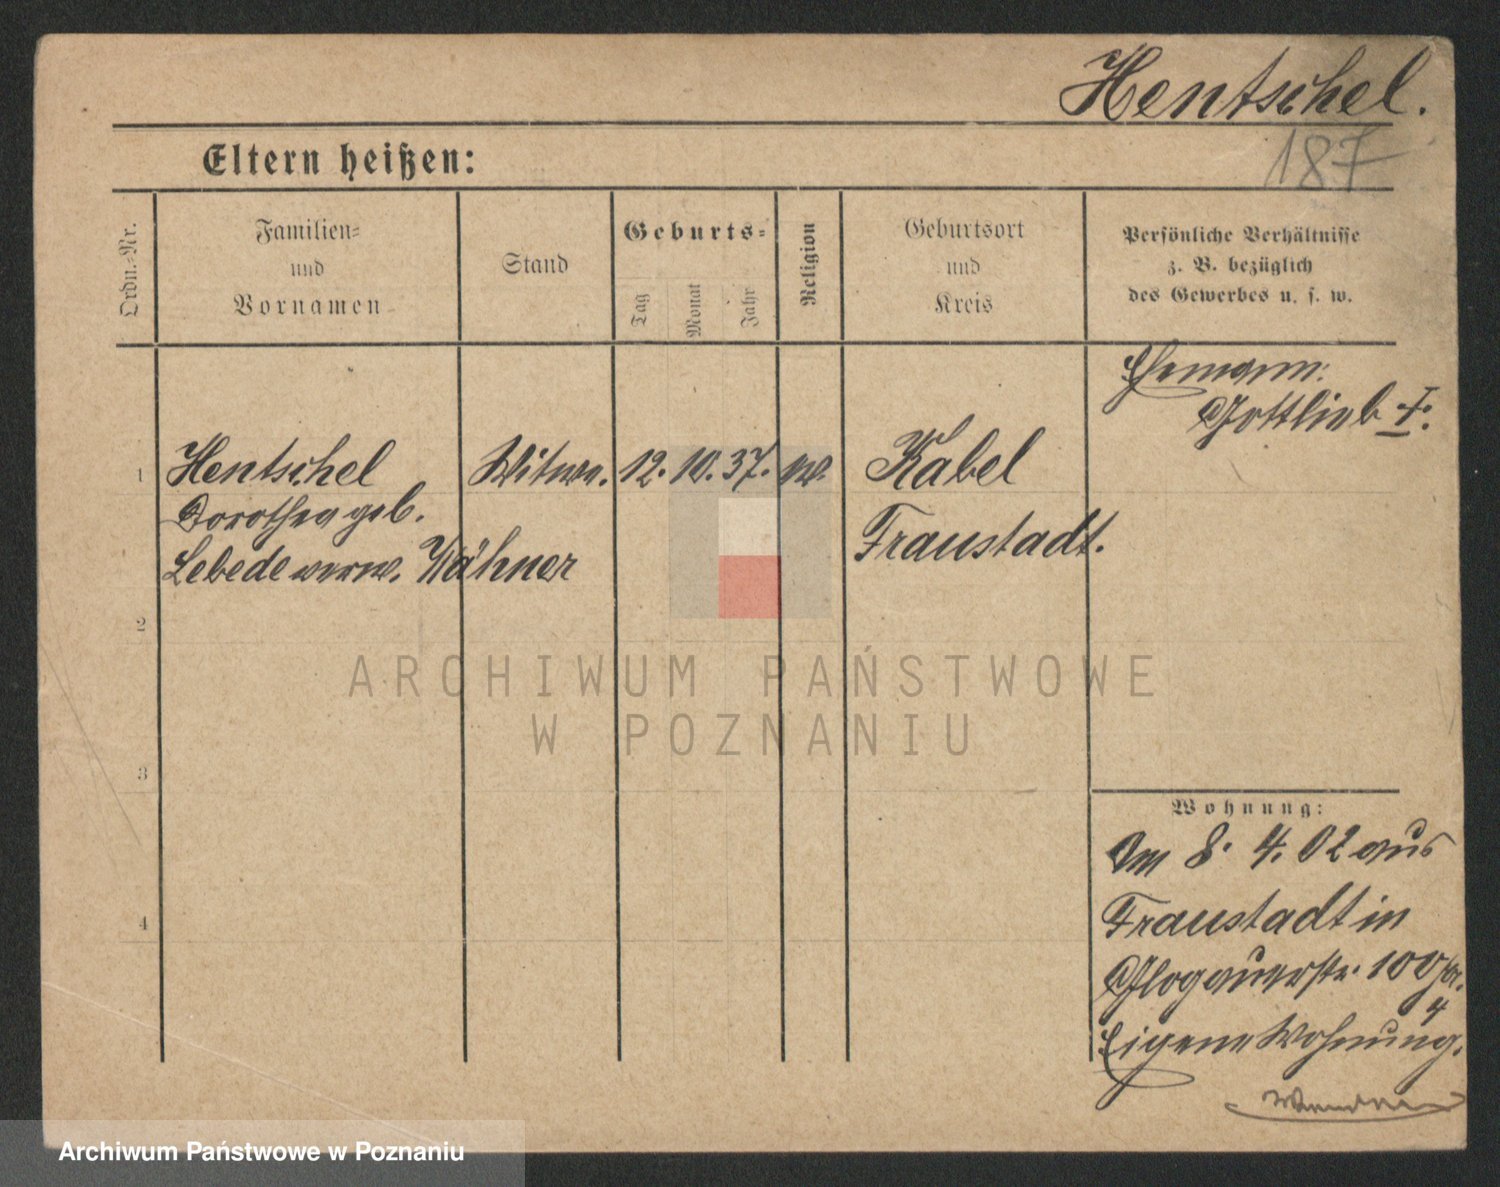 Hentschel.
187
Eltern heißen:
Ordn.-Nr.
Familien-
und
Vornamen
Stand
Geburts-
Tag
Monat
Jahr
Religion
Geburtsort
und
Kreis
Persönliche Verhältnisse
z. B. bezüglich
des Gewerbes u. s. w.
Ehemann:
Gottlieb †.
1 Hentschel Witwe. 12. 10. 37. ev. Kabel
Dorothea geb. Fraustadt.
Lebede verw. Wähner
2
3
4
Wohnung:
Am 8. 4. 02 aus
Fraustadt in
Glogauerstr. 100
4
Eigene Wohnung.
ARCHIWUM PAŃSTWOWE
W POZNANIU
Archiwum Państwowe w Poznaniu